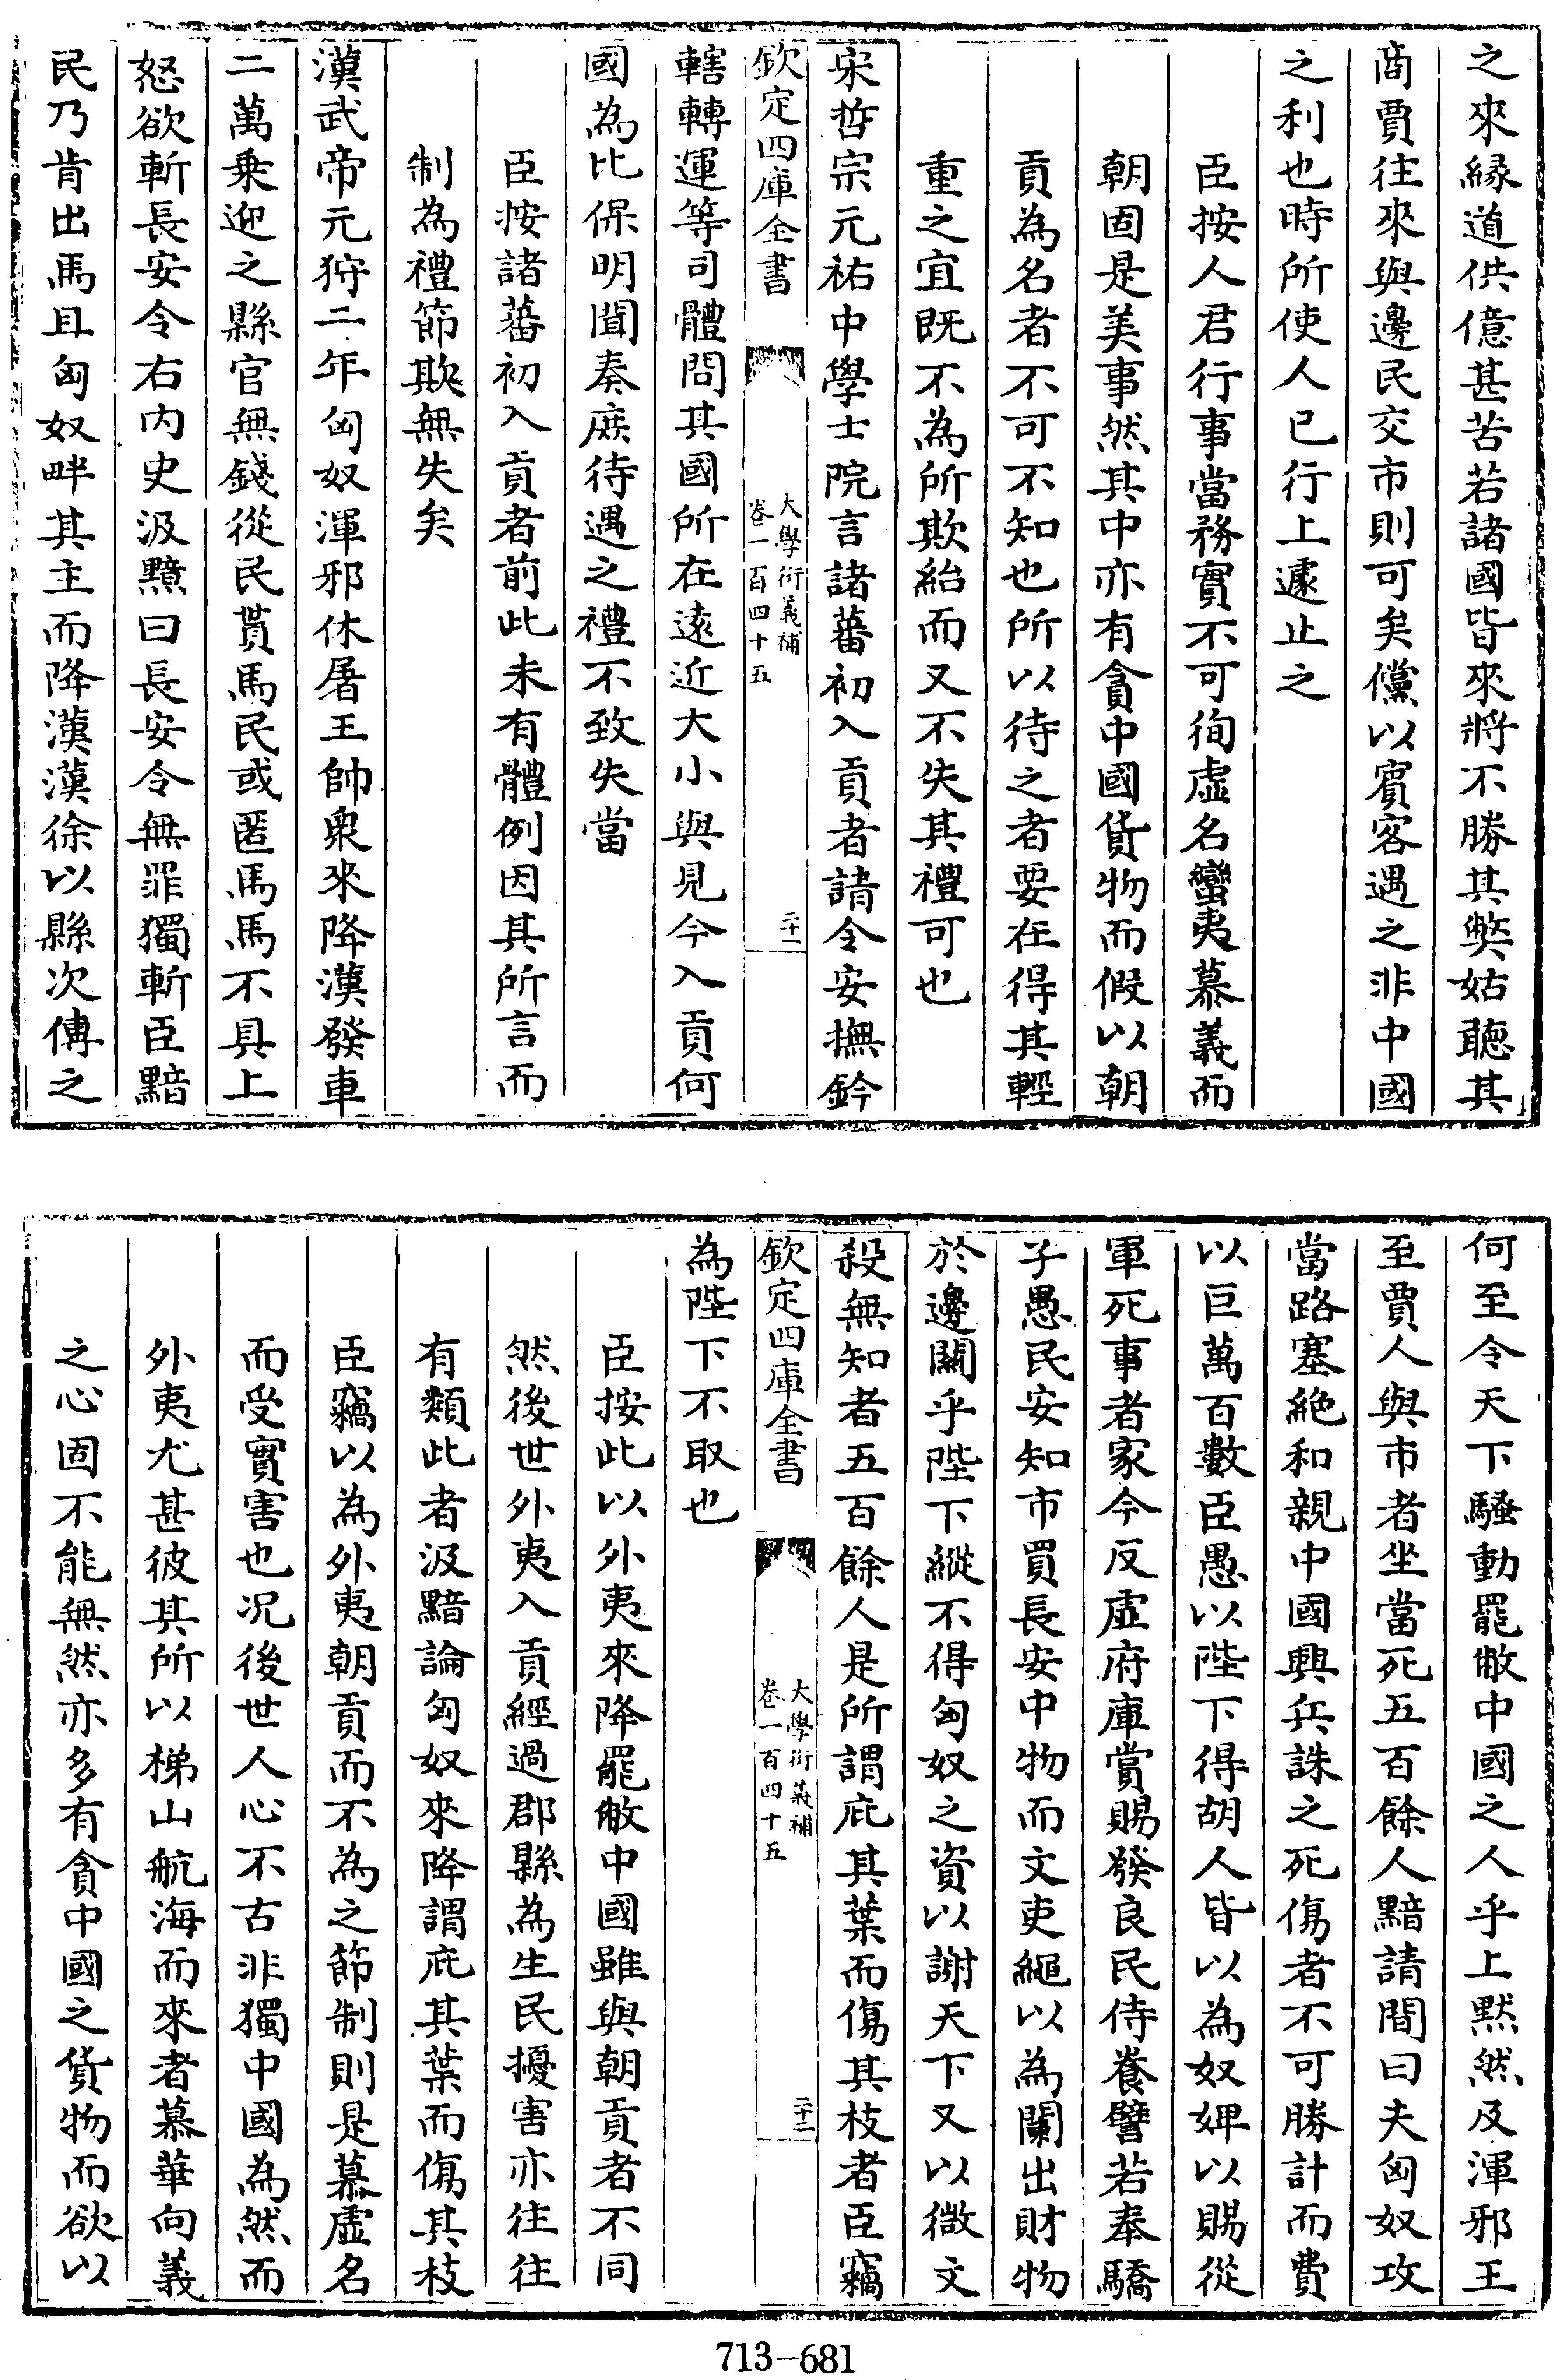 之來縁道供億甚苦若諸國皆來將不勝其弊姑聽其
商賈往來與邊民交市則可矣儻以賓客遇之非中國
之利也時所使人已行上遽止之
臣按人君行事當務實不可徇虛名蠻夷慕義而
朝固是美事然其中亦有貪中國貨物而假以朝
貢為名者不可不知也所以待之者要在得其輕
重之宜既不為所欺紿而又不失其禮可也
宋哲宗元祐中學士院言諸蕃初入貢者請令安撫鈐
欽定四庫全書
大學衍義補
卷一百四十五
二十一
轄轉運等司體問其國所在逺近大小與見今入貢何
國為比保明聞奏庶待遇之禮不致失當
臣按諸蕃初入貢者前此未有體例因其所言而
制為禮節欺無失矣
漢武帝元狩二年匈奴渾邪休屠王帥衆來降漢發車
二萬乗迎之縣官無錢從民貰馬民或匿馬馬不具上
怒欲斬長安令右内史汲黯曰長安令無罪獨斬臣黯
民乃肯出馬且匈奴畔其主而降漢漢徐以縣次傳之
何至令天下騷動罷敝中國之人乎上黙然及渾邪王
至賈人與市者坐當死五百餘人黯請間曰夫匈奴攻
當路塞絶和親中國興兵誅之死傷者不可勝計而費
以巨萬百數臣愚以陛下得胡人皆以為奴婢以賜從
軍死事者家今反虛府庫賞賜發良民侍養譬若奉驕
子愚民安知市買長安中物而文吏繩以為闌出財物
於邊關乎陛下縱不得匈奴之資以謝天下又以微文
殺無知者五百餘人是所謂庇其葉而傷其枝者臣竊
欽定四庫全書
大學衍義補
卷一百四十五
二十二
為陛下不取也
臣按此以外夷來降罷敝中國雖與朝貢者不同
然後世外夷入貢經過郡縣為生民擾害亦往往
有類此者汲黯論匈奴來降謂庇其葉而傷其枝
臣竊以為外夷朝貢而不為之節制則是慕虛名
而受實害也况後世人心不古非獨中國為然而
外夷尤甚彼其所以梯山航海而來者慕華向義
之心固不能無然亦多有貪中國之貨物而欲以
713-681